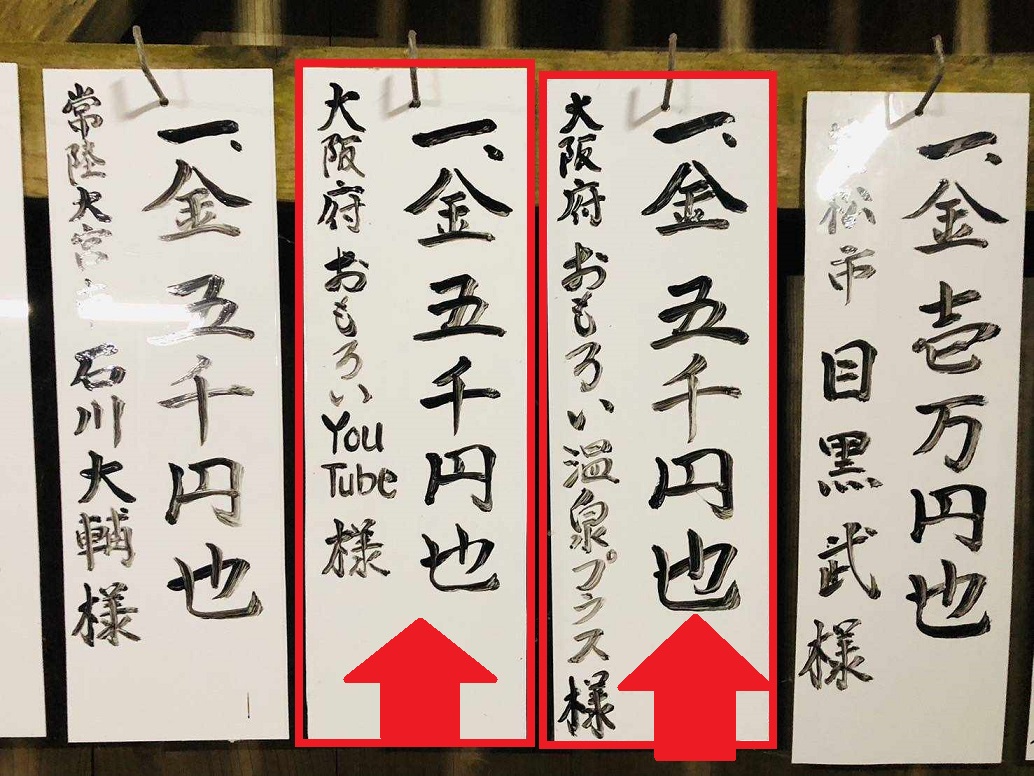 一、金 壱万円也
松市 目黒武様
一、金 五千円也
大阪府 おもろい温泉プラス様
一、金 五千円也
大阪府 おもろいYouTube様
一、金 五千円也
常陸大宮市 石川大輔様